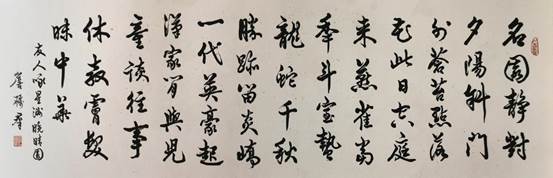 名園靜對
夕陽斜門
外蒼苔點落
花此日空庭
來燕雀當
年斗室蟄
龍蛇千秋
勝跡留炎嶠
一代英豪起
漢家閒與兒
童談往事
休教
昧中華
友人詠星洲晚晴園